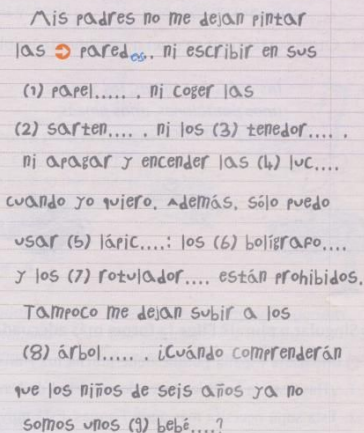 Mis padres no me dejan pintar
las ➲ paredes, ni escribir en sus
(1) papel..... , ni coger las
(2) sarten.... , ni los (3) tenedor.... ,
ni apagar y encender las (4) luc....
cuando yo quiero. Además, sólo puedo
usar (5) lápic....: los (6) bolígrafo....
y los (7) rotulador.... están prohibidos.
Tampoco me dejan subir a los
(8) árbol..... . ¡Cuándo comprenderán
que los niños de seis años ya no
somos unos (9) bebé....?